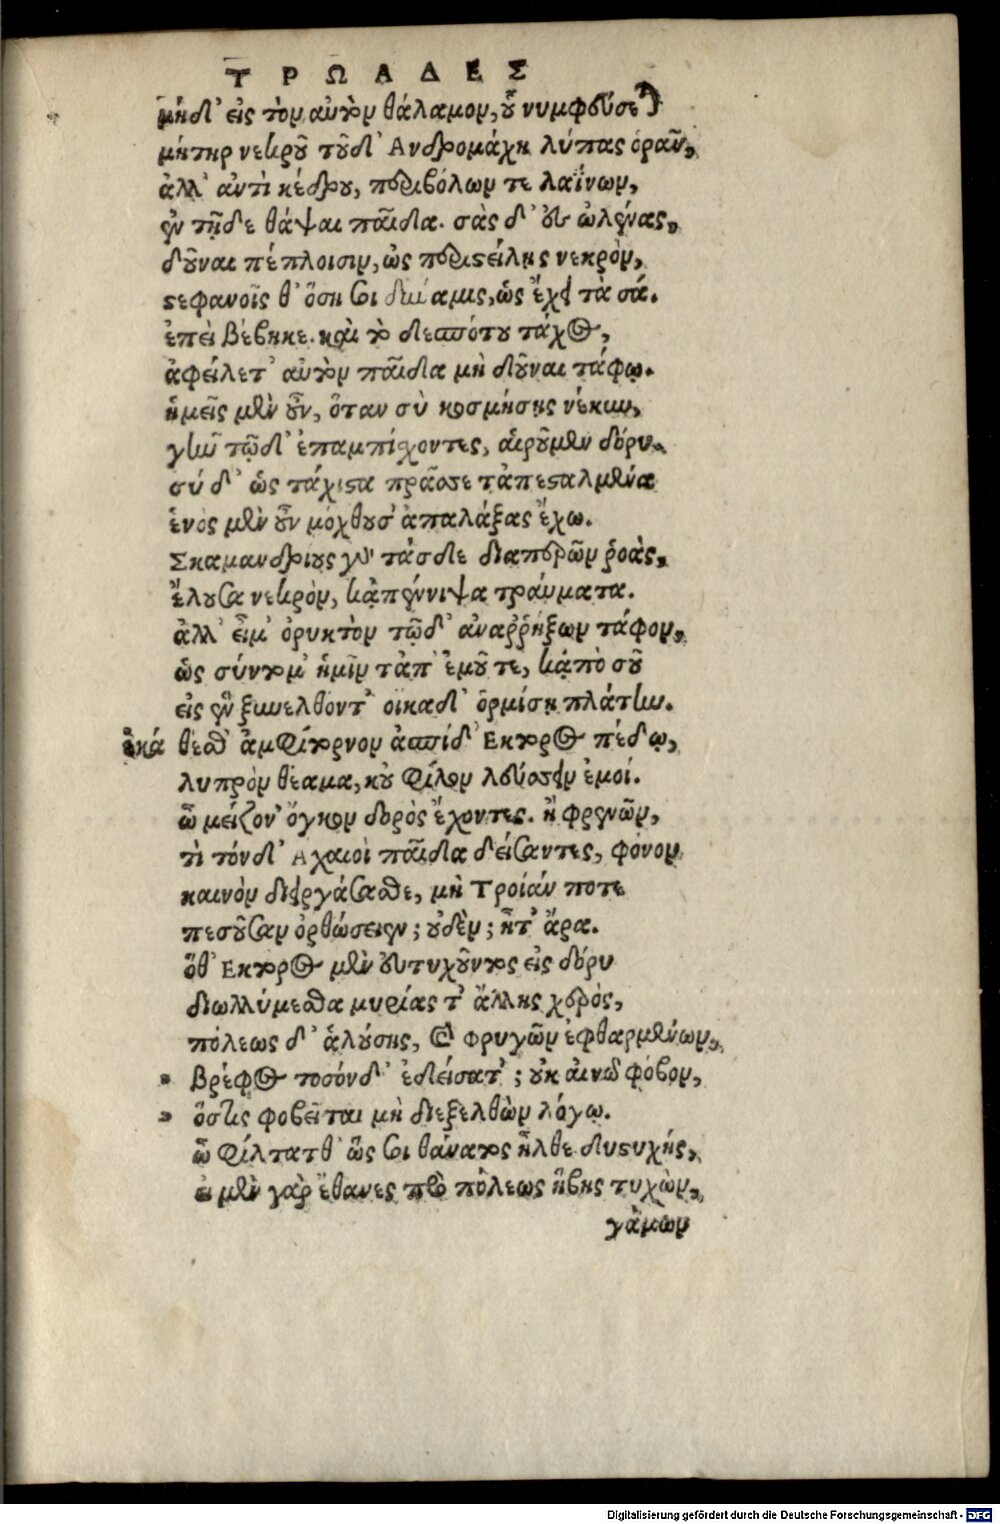 ΤΡΩΑΔΕΣ
μήδ' εἰς τὸν αὐτὸν θάλαμον, οὗ νυμφεύσεται
μήτηρ νεκροῦ τοῦδ' Ανδρομάχη λύπας ὁρᾶν,
ἀλλ' ἀντὶ κέδρου, περιβόλων τε λαΐνων,
ἐν τῇδε θάψαι παῖδα. σὰς δ' ἐς ὠλένας,
δοῦναι πέπλοισιν, ὡς περιστείλῃς νεκρὸν,
στεφανοῖς θ' ὅση σοι δύναμις, ὡς ἔχει τὰ σά.
ἐπεὶ βέβηκε. καὶ τὸ δεσπότου τάχος,
ἀφείλετ' αὐτὸν παῖδα μὴ δοῦναι τάφῳ.
ἡμεῖς μὲν οὖν, ὅταν σὺ κοσμήσῃς νέκυν,
γῆν τῷδ' ἐπαμπίχοντες, αἱροῦμεν δόρυ.
σύ δ' ὡς τάχιστα πρᾶσσε τἀπεσταλμένα
ἑνὸς μὲν οὖν μόχθου σ' ἀπαλάξας ἔχω.
Σκαμανδρίους γὰρ τάσδε διαπερῶν ῥοὰς,
ἔλουσα νεκρὸν, κᾀπένιψα τραύματα.
ἀλλ' εἶμ' ὀρυκτὸν τῷδ' ἀναῤῥήξων τάφον,
ὡς σύντομ' ἡμῖν τἀπ' ἐμοῦ τε, κἀπὸ σοῦ
εἰς ἓν ξυνελθόντ' οἴκαδ' ὁρμίσῃ πλάτην.
ἑκά θέσθ' ἀμφίτορνον ἀσπίδ' Εκτορος πέδῳ,
λυπρὸν θέαμα, κοὐ φίλον λεύσσειν ἐμοί.
ὦ μείζον' ὄγκον δορὸς ἔχοντες. ἢ φρενῶν,
τί τόνδ' Αχαιοὶ παῖδα δείσαντες, φόνον
καινὸν διειργάσασθε, μὴ Τροίαν ποτε
πεσοῦσαν ὀρθώσειεν; οὐδὲν; ἦτ' ἄρα.
ὅθ' Εκτορος μὲν εὐτυχοῦντος εἰς δόρυ
διωλλύμεσθα μυρίας τ' ἄλλης χερὸς,
πόλεως δ' ἁλούσης, καὶ φρυγῶν ἐφθαρμένων,
» βρέφος τοσόνδ' ἐδείσατ'; οὐκ αἰνῶ φόβον,
» ὅστις φοβεῖται μὴ διεξελθὼν λόγῳ.
ὦ φίλτατθ' ὥς σοι θάνατος ἦλθε δυστυχής,
εἰ μὲν γὰρ ἔθανες πρὸ πόλεως ἥβης τυχὼν,
γάμων
Digitalisierung gefördert durch die Deutsche Forschungsgemeinschaft - DFG